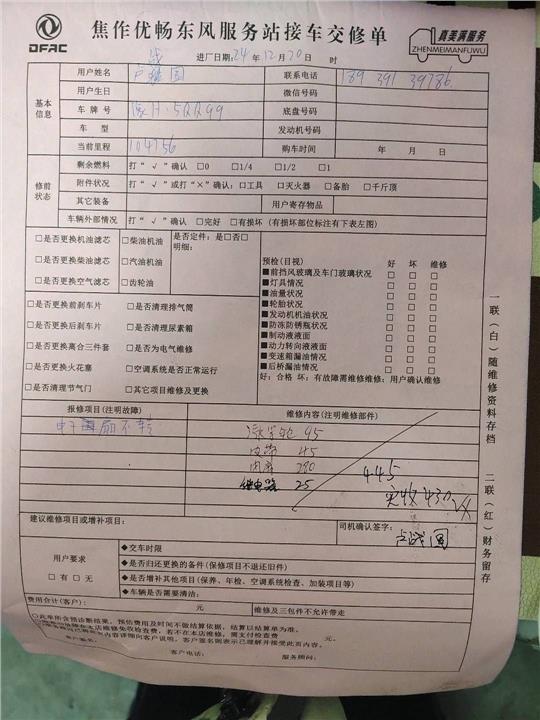 DFAC
焦作优畅东风服务站接车交修单
真美满服务
ZHENMEIMANFUWU
进厂日期:24 年 12 月 20 日 时
用户姓名 卢战国 联系电话 189 391 39786
基本信息
用户生日 微信号码
车牌号 豫H·5QQ99 底盘号码
车型 发动机号码
当前里程 104756 购车时间 年 月 日
修前状态
剩余燃料 打“√”确认 □0 □1/4 □1/2 □1
附件状况 打“√”或打“×”确认:□工具 □灭火器 □备胎 □千斤顶
其它装备 用户寄存物品
车辆外部情况 打“√”确认 □完好 □有损坏 (有损坏部位标注有下表左图)
□是否更换机油滤芯 □柴油机油 是否定件:是□否□
明细:
□是否更换柴油滤芯 □汽油机油
□是否更换空气滤芯 □齿轮油
预检(目视) 好 坏 维修
■前挡风玻璃及车门玻璃状况 □ □ □
■灯具情况 □ □ □
■油量状况 □ □ □
■轮胎状况 □ □ □
■发动机机油状况 □ □ □
■防冻防锈瓶状况 □ □ □
■制动液液面 □ □ □
■动力转向液液面 □ □ □
■变速箱漏油情况 □ □ □
■后桥漏油情况 □ □ □
好:合格 坏:有故障需维修维修:用户确认维修
□是否更换前刹车片 □是否清理排气筒
□是否更换后刹车片 □是否清理尿素箱
□是否更换离合三件套 □是否为电气维修
□是否更换火花塞 □空调系统是否正常运行
□是否清理节气门 □其它项目维修及更换
报修项目(注明故障) 维修内容(注明维修部件)
电子扇不转
95
皮带 45
280
继电器 25
445
实收430
建议维修项目或增补项目:
司机确认签字:
卢战国
用户要求
□有 □无
◆交车时限
◆是否归还更换的备件(保修项目不退还旧件)
◆是否增补其他项目(保养、年检、空调系统检查、加装项目等)
◆车辆是否需要清洁:
费用合计(客户): 元 维修及三包件不允许带走
元。
客户签名:
客户电话: 服务顾问:
一联(白)随维修资料存档
二联(红)财务留存